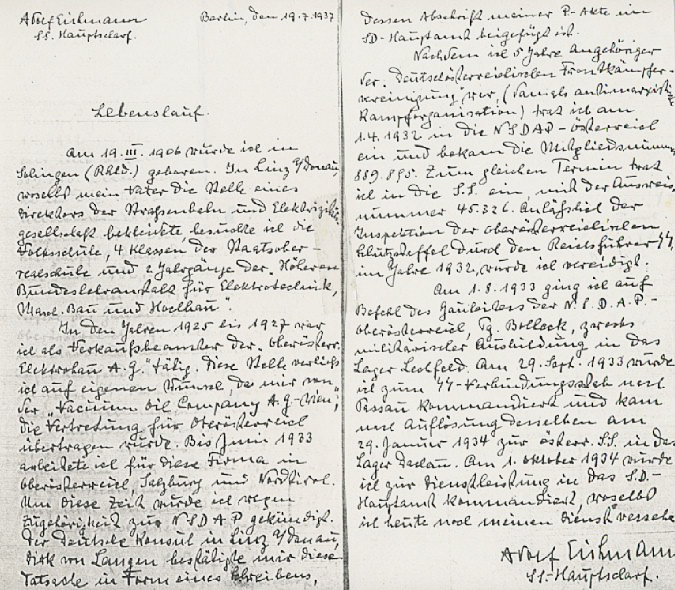 Adolf Eichmann
SS. Hauptscharf.
Berlin, den 19.7.1937
Lebenslauf.
Am 19. III. 1906 wurde ich in
Solingen (Rhld.) geboren. In Linz a/Donau,
woselbst mein Vater die Stelle eines
Direktors der Straßenbahn und Elektrizitäts-
gesellschaft bekleidete besuchte ich die
Volksschule, 4 Klassen der Staatsober-
realschule und 2 Jahrgänge der „Höheren
Bundeslehranstalt für Elektrotechnik,
Masch. Bau und Hochbau".
In den Jahren 1925 bis 1927 war
ich als Verkaufsbeamter der „oberösterr.
Elektrobau A. G." tätig. Diese Stelle verließ
ich auf eigenen Wunsch, da mir von
der „Vacuum Oil Company A. G.-Wien",
die Vertretung für Oberösterreich
übertragen wurde. Bis Juni 1933
arbeitete ich für diese Firma in
Oberösterreich, Salzburg und Nordtirol.
Um diese Zeit wurde ich wegen
Zugehörigkeit zur NSDAP gekündigt.
Der Deutsche Konsul in Linz a/Donau,
Dirk von Langen bestätigte mir diese
Tatsache in Form eines Schreibens,
Dessen Abschrift meiner P-Akte im
SD-Hauptamt beigefügt ist.
Nachdem ich 5 Jahre Angehöriger
der „Deutschösterreichischen Frontkämpfer-
vereinigung" war, (damals antimarxistische
Kampforganisation) trat ich am
1.4.1932 in die NSDAP-Österreich
ein und bekam die Mitgliedsnummer
889.895. Zum gleichen Termin trat
ich in die SS ein, mit der Ausweis-
nummer 45.326. Anläßlich der
Inspektion der oberösterreichischen
Schutzstaffel durch den Reichsführer SS
im Jahre 1932, wurde ich vereidigt.
Am 1.8.1933 ging ich auf
Befehl des Gauleiters der N.S.D.A.P.-
Oberösterreich, Pg. Bolleck, zwecks
militärischer Ausbildung in das
Lager Lechfeld. Am 29. Sept. 1933 wurde
ich zum SS-Verbindungsstab nach
Passau kommandiert und kam
nach Auflösung desselben am
29. Januar 1934 zur österr. S.S. in das
Lager Dachau. Am 1. Oktober 1934 wurde
ich zur Dienstleistung in das S.D.-
Hauptamt kommandiert, woselbst
ich heute noch meinen Dienst versehe.
Adolf Eichmann
SS-Hauptscharf.